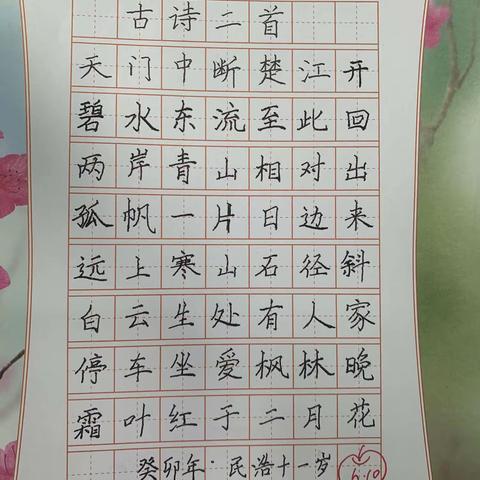 古诗二首
天门中断楚江开
碧水东流至此回
两岸青山相对出
孤帆一片日边来
远上寒山石径斜
白云生处有人家
停车坐爱枫林晚
霜叶红于二月花
癸卯年·民浩十一岁
6.10